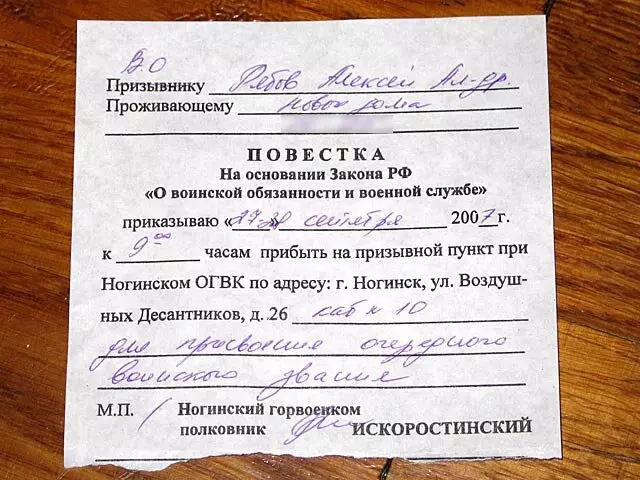 В.О
Призывнику Рябов Алексей Ал-др.
Проживающему новые дома
ПОВЕСТКА
На основании Закона РФ
«О воинской обязанности и военной службе»
приказываю «27-28» сентября 2007 г.
к 9 00 часам прибыть на призывной пункт при
Ногинском ОГВК по адресу: г. Ногинск, ул. Воздуш-
ных Десантников, д. 26 каб н 10
для присвоения очередного
воинского звания
М.П. Ногинский горвоенком
полковник ИСКОРОСТИНСКИЙ